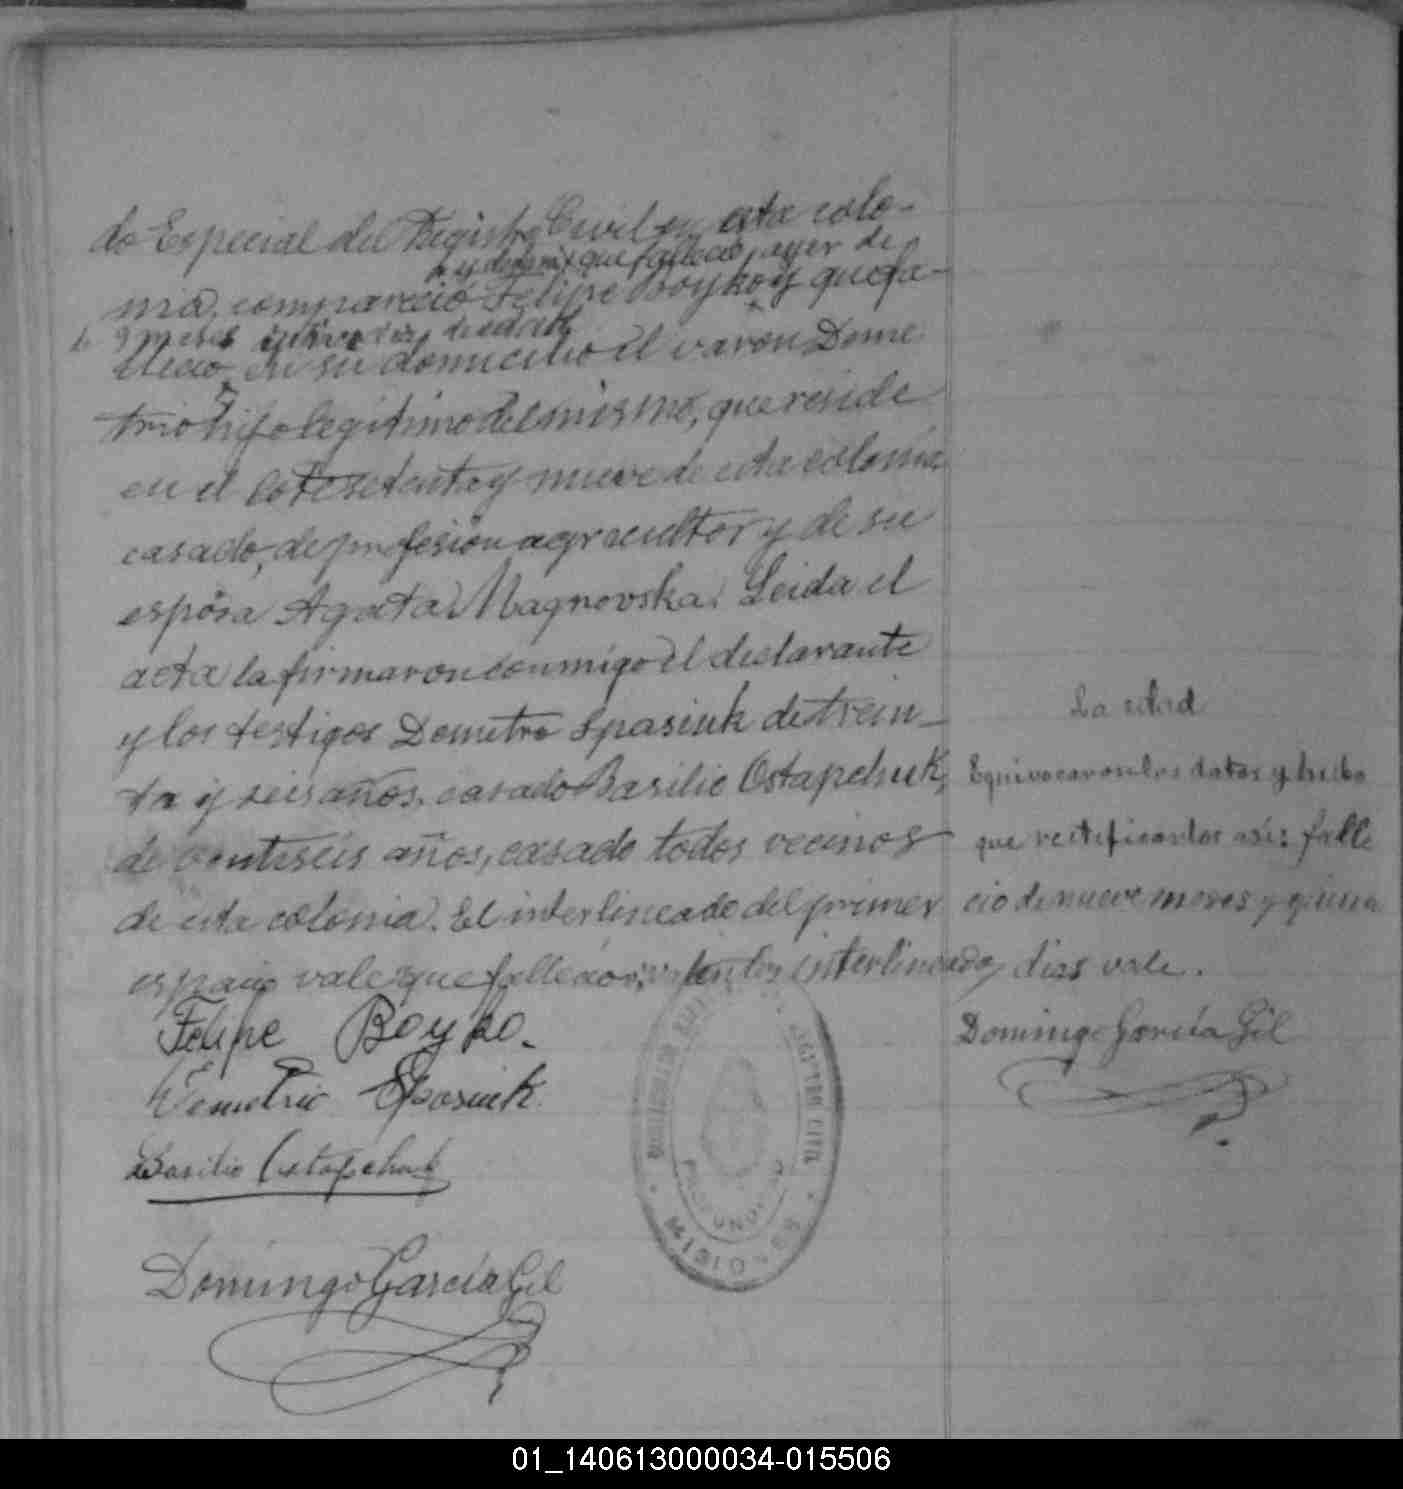 do Especial del Registro Civil en esta colo-
que falleció, ayer de
nia, compareció Felipe Boyko y que fa-
9 meses de edad
lleció en su domicilio el varon Deme
trio hijo legítimo del mismo, que reside
en el lote setenta y nueve de esta colonia
casado, de profesión agricultor y de su
esposa Agata Magnovska. Leida el
acta la firmaron conmigo el declarante
y los testigos Demetro Spasiuk de trein-
ta y seis años, casado Basilio Ostapchuk,
de veintiseis años, casado todos vecinos
de esta colonia. El interlineado del primer
espacio vale que falleció interlineado
La edad
Equivocaron los datos y hubo
que rectificarlos asi: falle
cio de nueve meses y quince
dias vale.
Domingo García Gil
Felipe Boyko.
Demetrio Spasiuk
Basilio Ostapchuk
Domingo García Gil
REGISTRO CIVIL
MISIONES
01_140613000034-015506